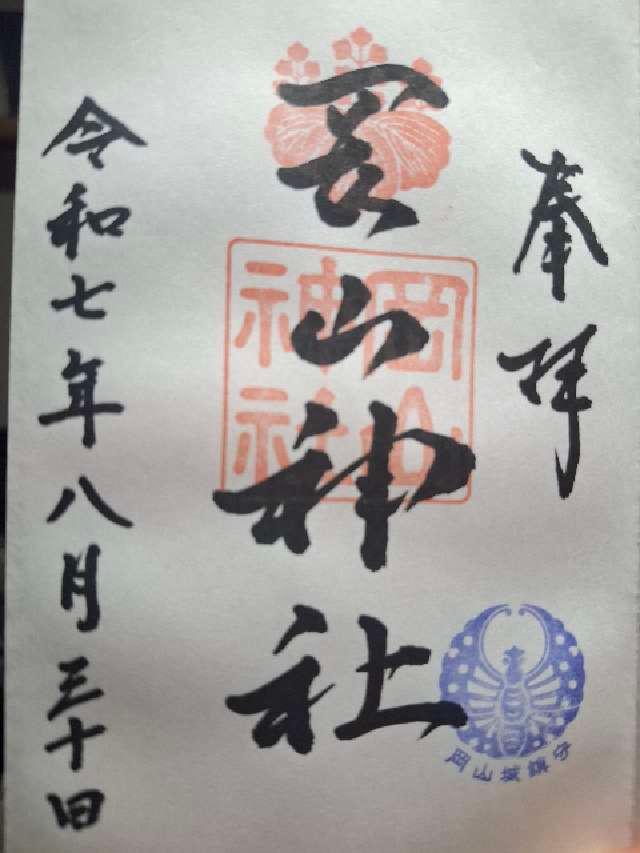 奉拝
岡山神社
岡山神社
岡山城鎮守
令和七年八月三十日